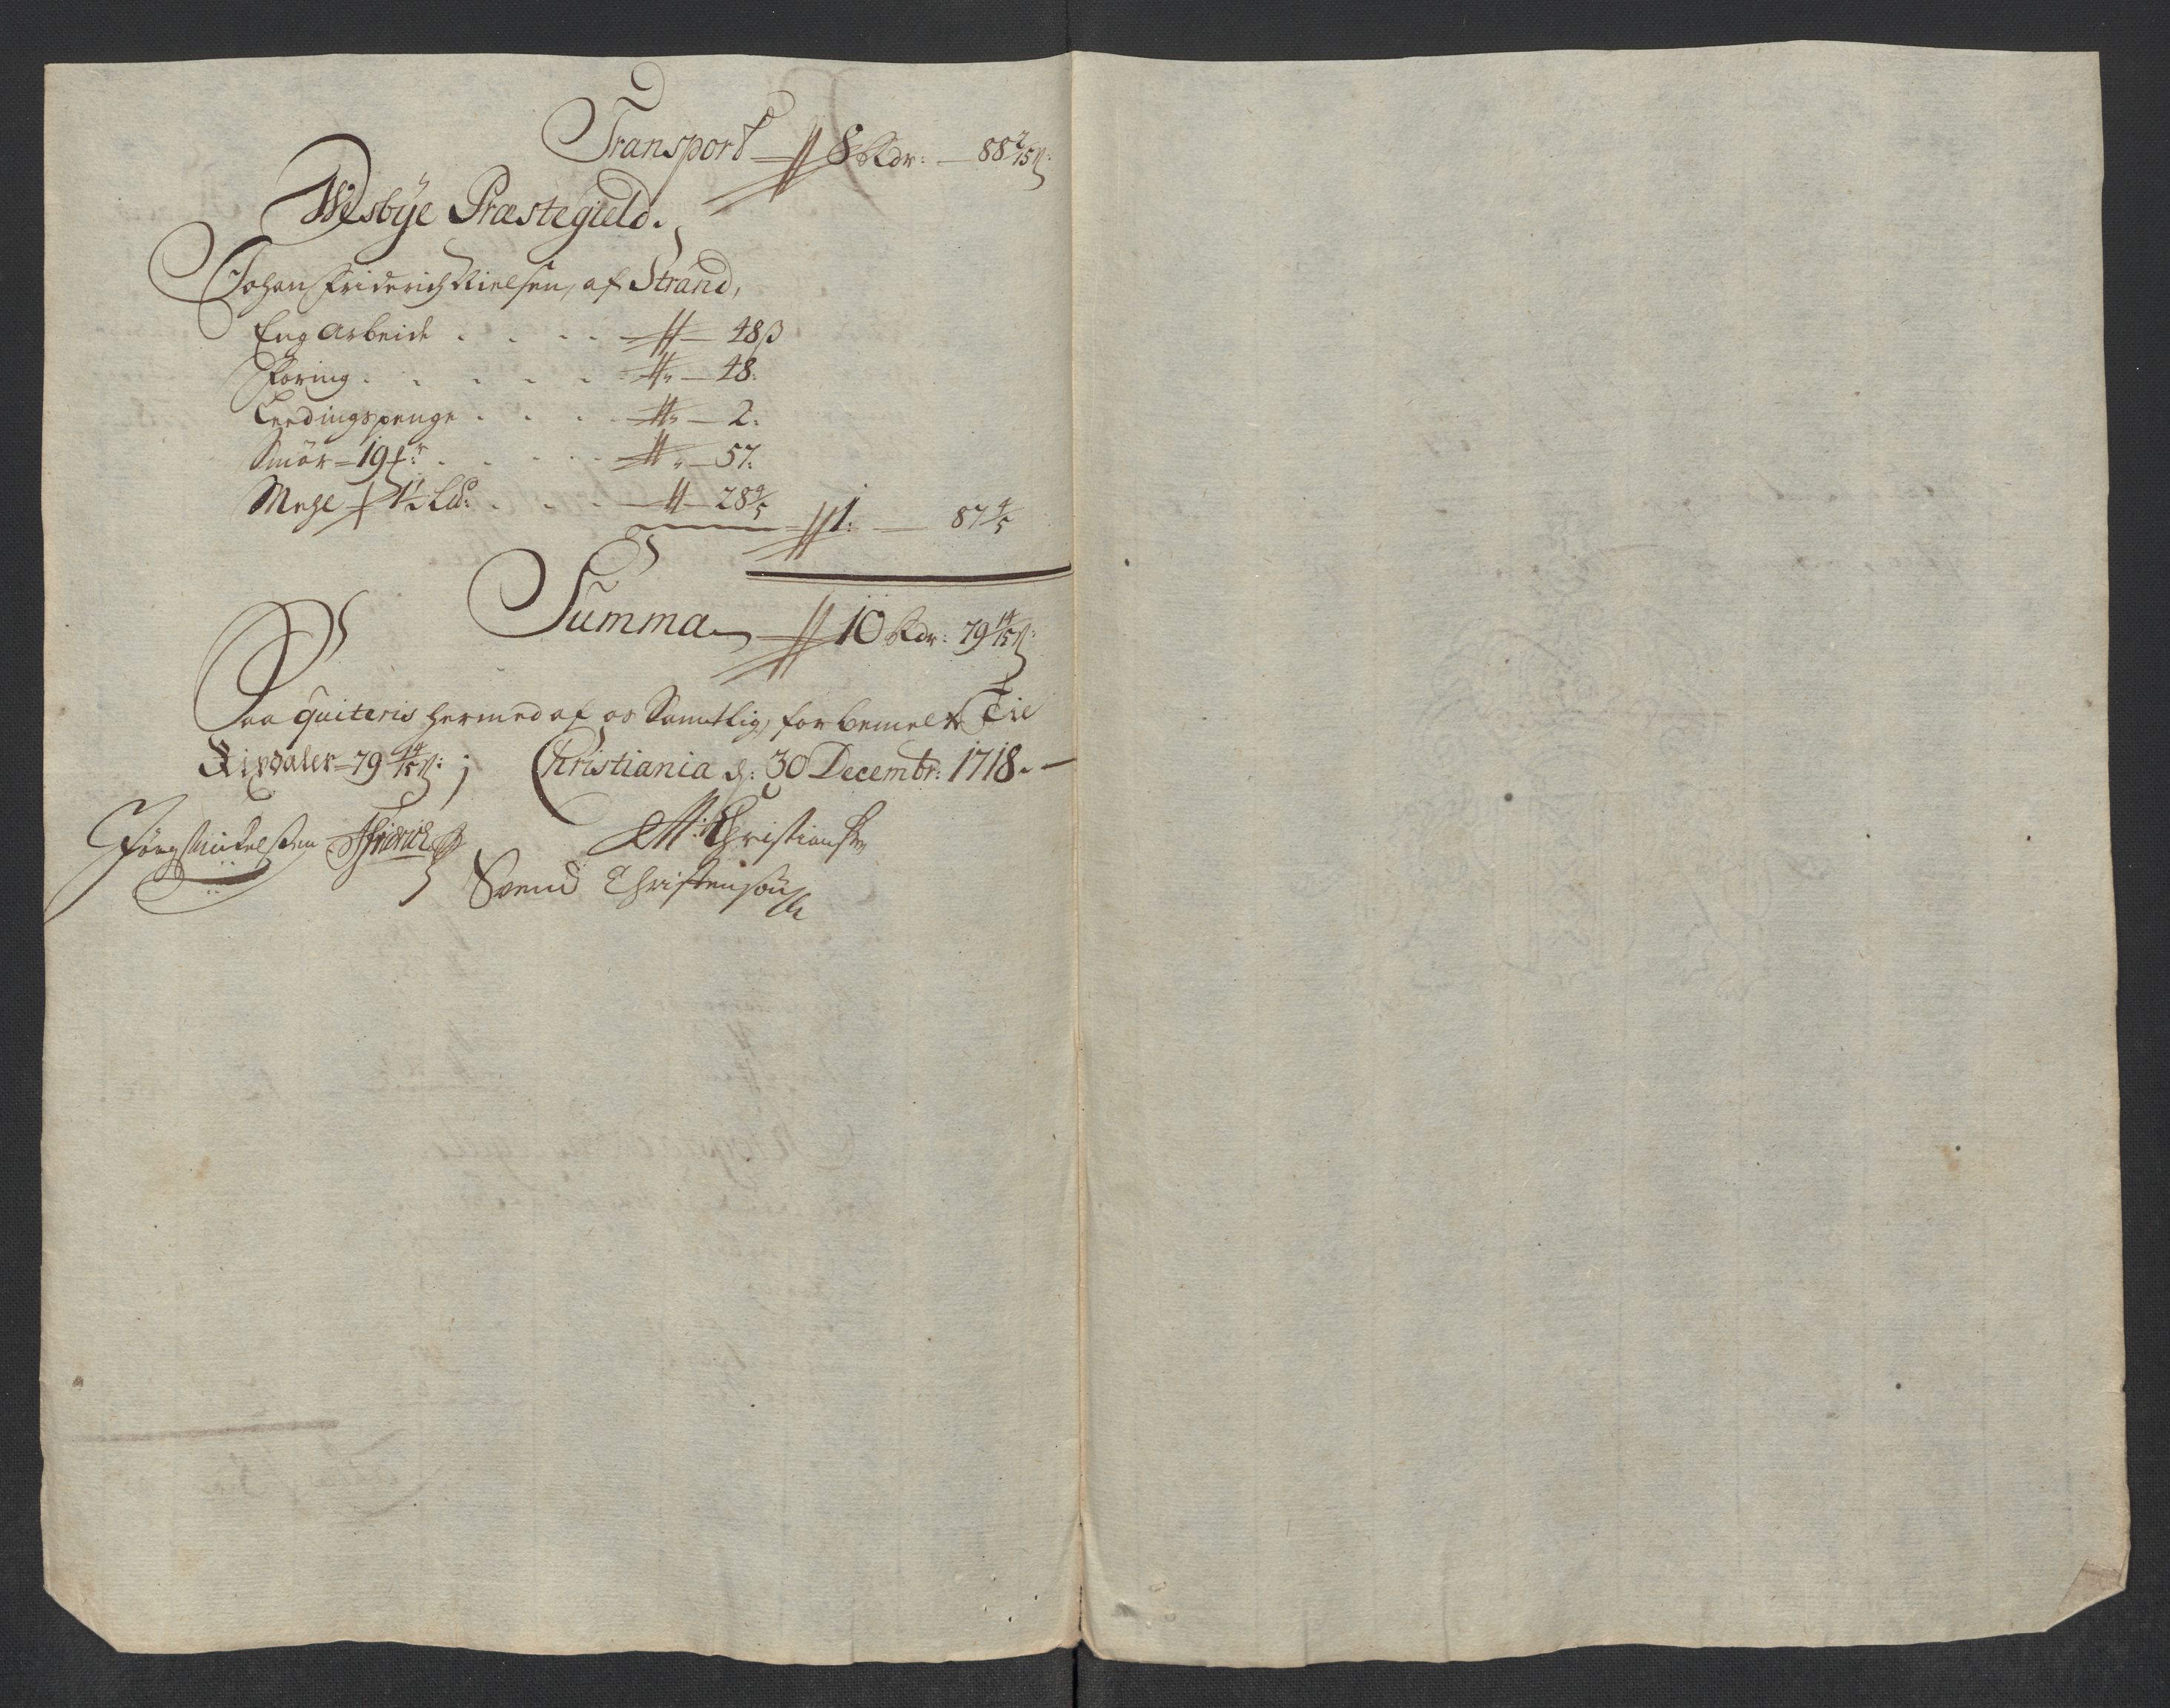 Transport — 8 Rdr: — 88 2/15 ß:
Wesbÿe Præstegield.
Johan Friderich Nielsen, af Strand,
Eng Arbeide . . . . — 48 ß
Foring . . . . . — 48.
Leedingspenge . . . — 2.
Smör = 19 . . . . — 57.
Mehl 1½ Ld: . . . — 28 4/5
1: — 87 4/5
Summa — 10 Rdr: 79 14/15 ß:
Saa quiteris hermed af os Samtlig, for bemelte Tie
Rixdaler = 79 14/15 ß: ; Christiania d: 30 Decembr: 1718. —
Friderich
Svend Christensøn